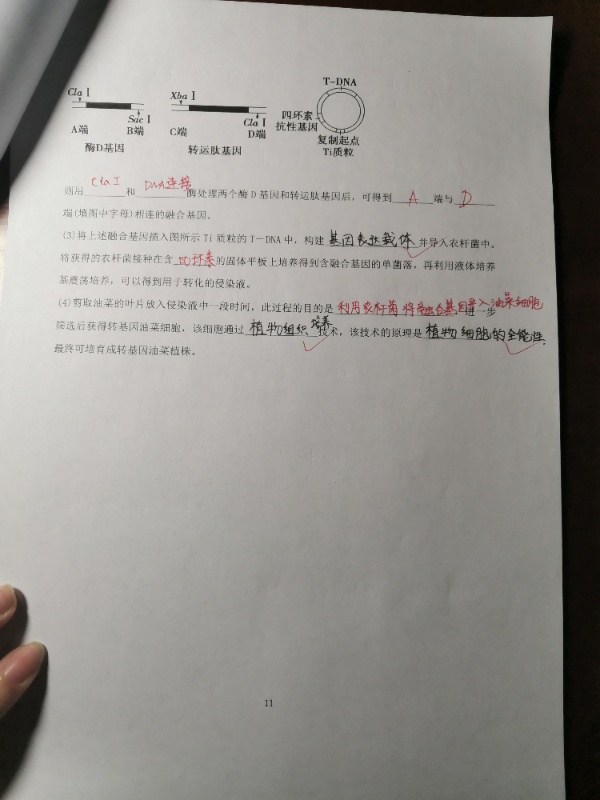 Cla Ⅰ Xba Ⅰ T-DNA
Sac Ⅰ Cla Ⅰ 四环素
抗性基因
A端 B端 C端 D端 复制起点
酶D基因 转运肽基因 Ti质粒
则用 Cla Ⅰ 和 DNA连接 酶处理两个酶D基因和转运肽基因后，可得到 A 端与 D
端(填图中字母)相连的融合基因。
(3)将上述融合基因插入图所示 Ti 质粒的 T－DNA 中，构建 基因表达载体 并导入农杆菌中。
将获得的农杆菌接种在含 四环素 的固体平板上培养得到含融合基因的单菌落，再利用液体培养
基震荡培养，可以得到用于转化的侵染液。
(4)剪取油菜的叶片放入侵染液中一段时间，此过程的目的是 利用农杆菌将融合基因导入油菜细胞 进一步
筛选后获得转基因油菜细胞，该细胞通过 植物组织培养 技术，该技术的原理是 植物细胞的全能性，
最终可培育成转基因油菜植株。
11